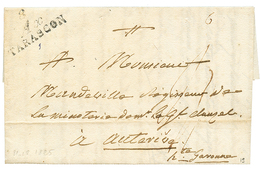 TARASCON
6
A
Monsieur
Mandeville Régisseur de
la minoterie de mr. le Gl. Clauzel
à auterive
hte garonne